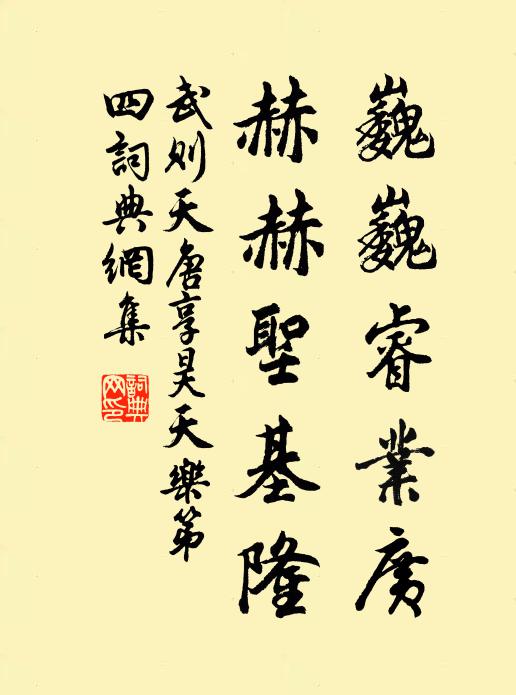 巍巍睿業廣
赫赫聖基隆
武則天唐享昊天樂第
四詞典網集
詞典
网印